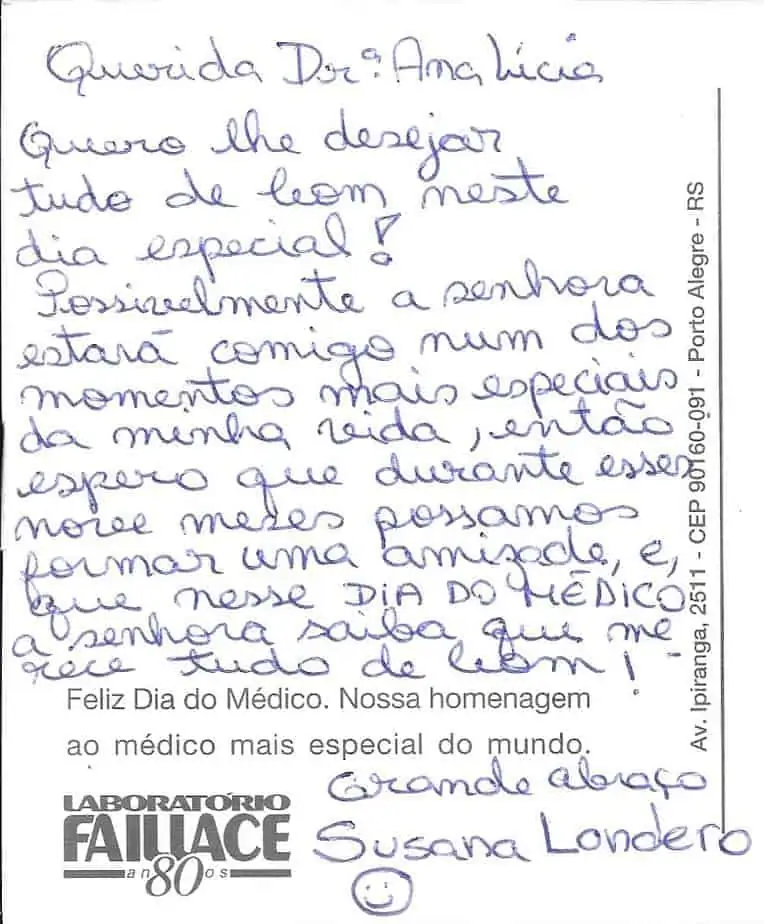 Querida Drª Ana Lúcia
Quero lhe desejar
tudo de bom neste
dia especial!
Possivelmente a senhora
estará comigo num dos
momentos mais especiais
da minha vida, então
espero que durante esses
nove meses possamos
formar uma amizade, e,
que nesse DIA DO MÉDICO
a senhora saiba que me
rece tudo de bom!
Feliz Dia do Médico. Nossa homenagem
ao médico mais especial do mundo.
Grande abraço
Susana Londero
LABORATÓRIO
FAILLACE
80 anos
Av. Ipiranga, 2511 - CEP 90160-091 - Porto Alegre - RS